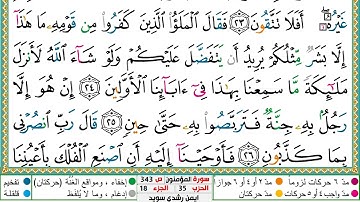 غَيْرُهُۥٓ أَفَلَا تَتَّقُونَ ٢٣ فَقَالَ ٱلْمَلَؤُا۟ ٱلَّذِينَ كَفَرُوا۟ مِن قَوْمِهِۦ مَا هَٰذَآ
إِلَّا بَشَرٌ مِّثْلُكُمْ يُرِيدُ أَن يَتَفَضَّلَ عَلَيْكُمْ وَلَوْ شَآءَ ٱللَّهُ لَأَنزَلَ
مَلَٰٓئِكَةً مَّا سَمِعْنَا بِهَٰذَا فِىٓ ءَابَآئِنَا ٱلْأَوَّلِينَ ٢٤ إِنْ هُوَ إِلَّا
رَجُلٌۢ بِهِۦ جِنَّةٌ فَتَرَبَّصُوا۟ بِهِۦ حَتَّىٰ حِينٍ ٢٥ قَالَ رَبِّ ٱنصُرْنِى
بِمَا كَذَّبُونِ ٢٦ فَأَوْحَيْنَآ إِلَيْهِ أَنِ ٱصْنَعِ ٱلْفُلْكَ بِأَعْيُنِنَا
مدّ ٦ حركات لزوماً مدّ ٢ أو ٤ أو ٦ جوازاً
مدّ واجب ٤ أو ٥ حركات مدّ حركتان
سورة المؤمنون ص 343
الحزب 35 الجزء 18
أيمن رشدي سويد
إخفاء، ومواقع الغُنَّة (حركتان) تفخيم
إدغام، وما لا يُلفَظ قلقلة